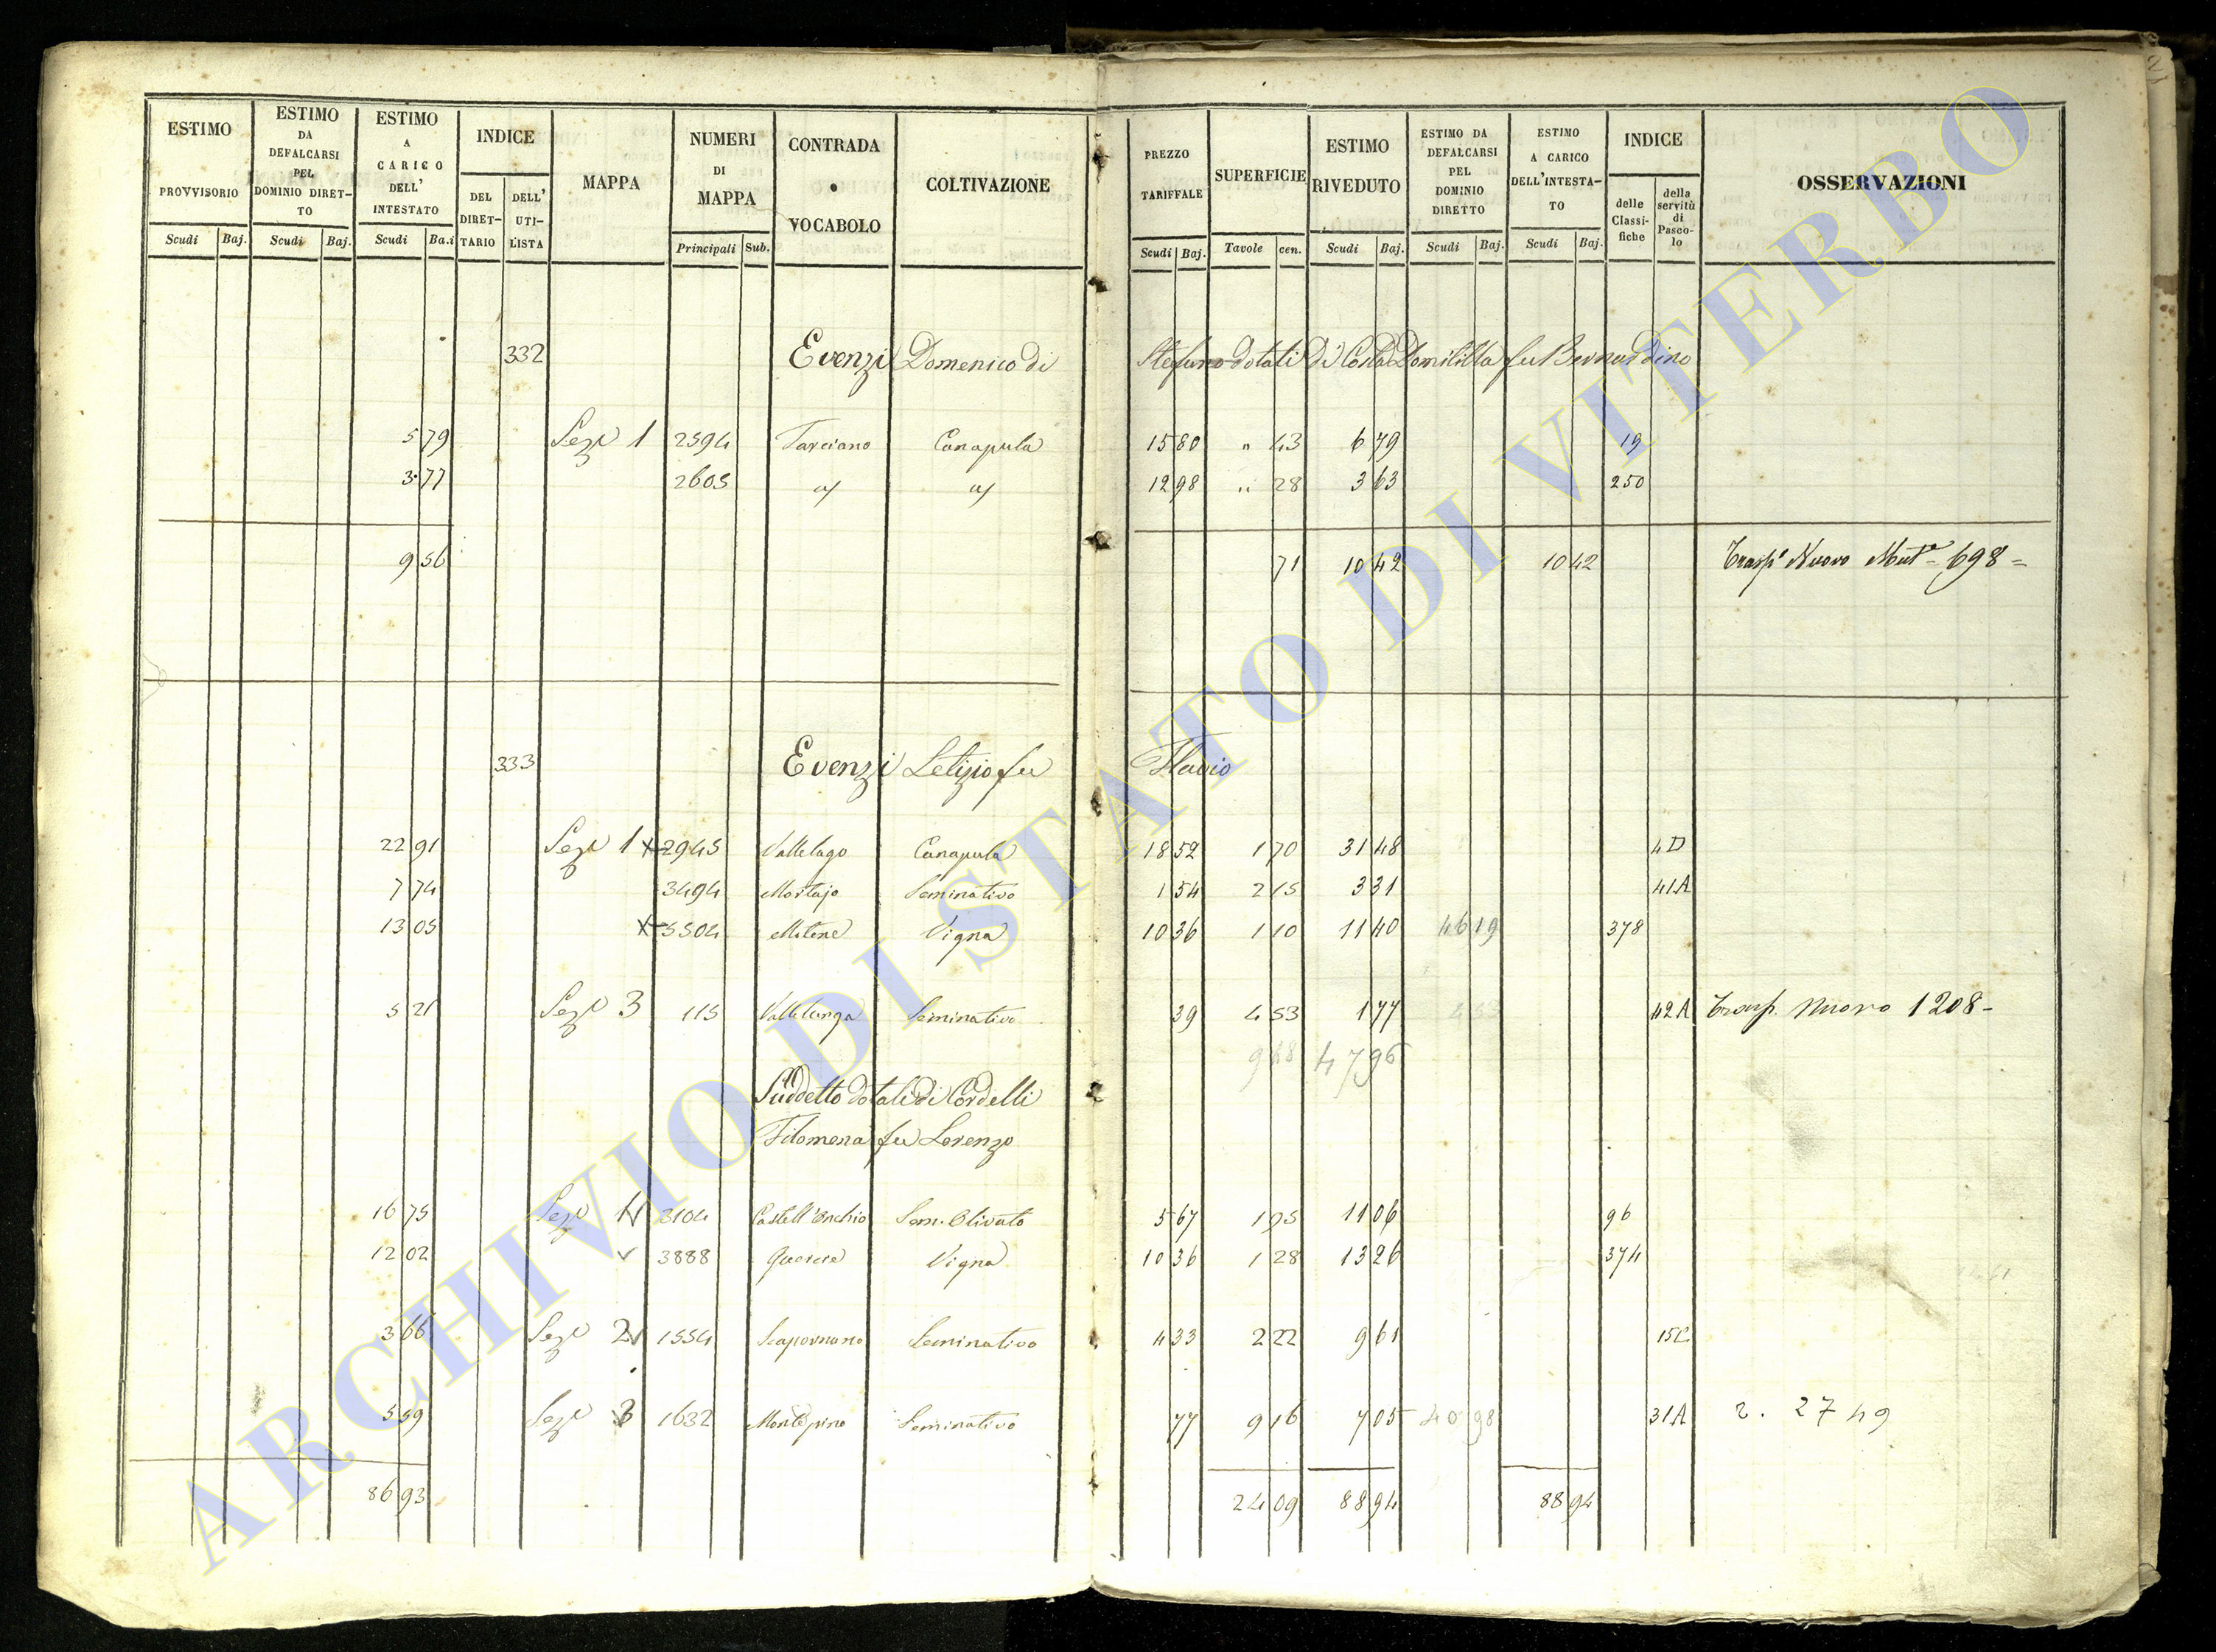 21
ESTIMO PROVVISORIO Scudi Baj.
ESTIMO DA DEFALCARSI PEL DOMINIO DIRET-TO Scudi Baj.
ESTIMO A CARICO DELL' INTESTATO Scudi Ba.i
INDICE DEL DIRET-TARIO DELL' UTI-LISTA
MAPPA
NUMERI DI MAPPA Principali Sub.
CONTRADA o VOCABOLO
COLTIVAZIONE
PREZZO TARIFFALE Scudi Baj.
SUPERFICIE Tavole cen.
ESTIMO RIVEDUTO Scudi Baj.
ESTIMO DA DEFALCARSI PEL DOMINIO DIRETTO Scudi Baj.
ESTIMO A CARICO DELL'INTESTA-TO Scudi Baj.
INDICE delle Classi-fiche della servitù di Pasco-lo
OSSERVAZIONI
332 Evenzi Domenico di Stefano dotali di Costa Domitilla fu Bernardino
5 79 Sez.e 1 2594 Tarciano Canapula 15 80 " 43 6 79 19
3 77 2605 " " 12 98 " 28 3 63 250
9 56 71 10 42 10 42 Trasp.o Nuovo Mat.e 698 =
333 Evenzi Letizio fu Flavio
22 91 Sez.e 1 2945 Vallelago Canapula 18 52 1 70 31 48 4D
7 74 3494 Mortajo Seminativo 1 54 2 15 3 31 41A
13 05 3504 Vigna 10 36 1 10 11 40 46 19 378
5 21 Sez.e 3 115 Vallelunga Seminativo 39 4 53 1 77 42A Trasp. Nuovo 1208 -
9 48 47 96
Suddetto dotali di Cordelli
Filomena fu Lorenzo
16 75 Sez.e 1 3104 Castell'Onchio Sem. Olivato 5 67 1 95 11 06 96
12 02 3888 Quercie Vigna 10 36 1 28 13 26 374
3 66 Sez.e 2 1554 Seminativo 4 33 2 22 9 61 15C
5 59 Sez.e 3 1632 Montepino Seminativo 77 9 16 7 05 40 98 31A 2. 2749
86 93 24 09 88 94 88 94
ARCHIVIO DI STATO DI VITERBO